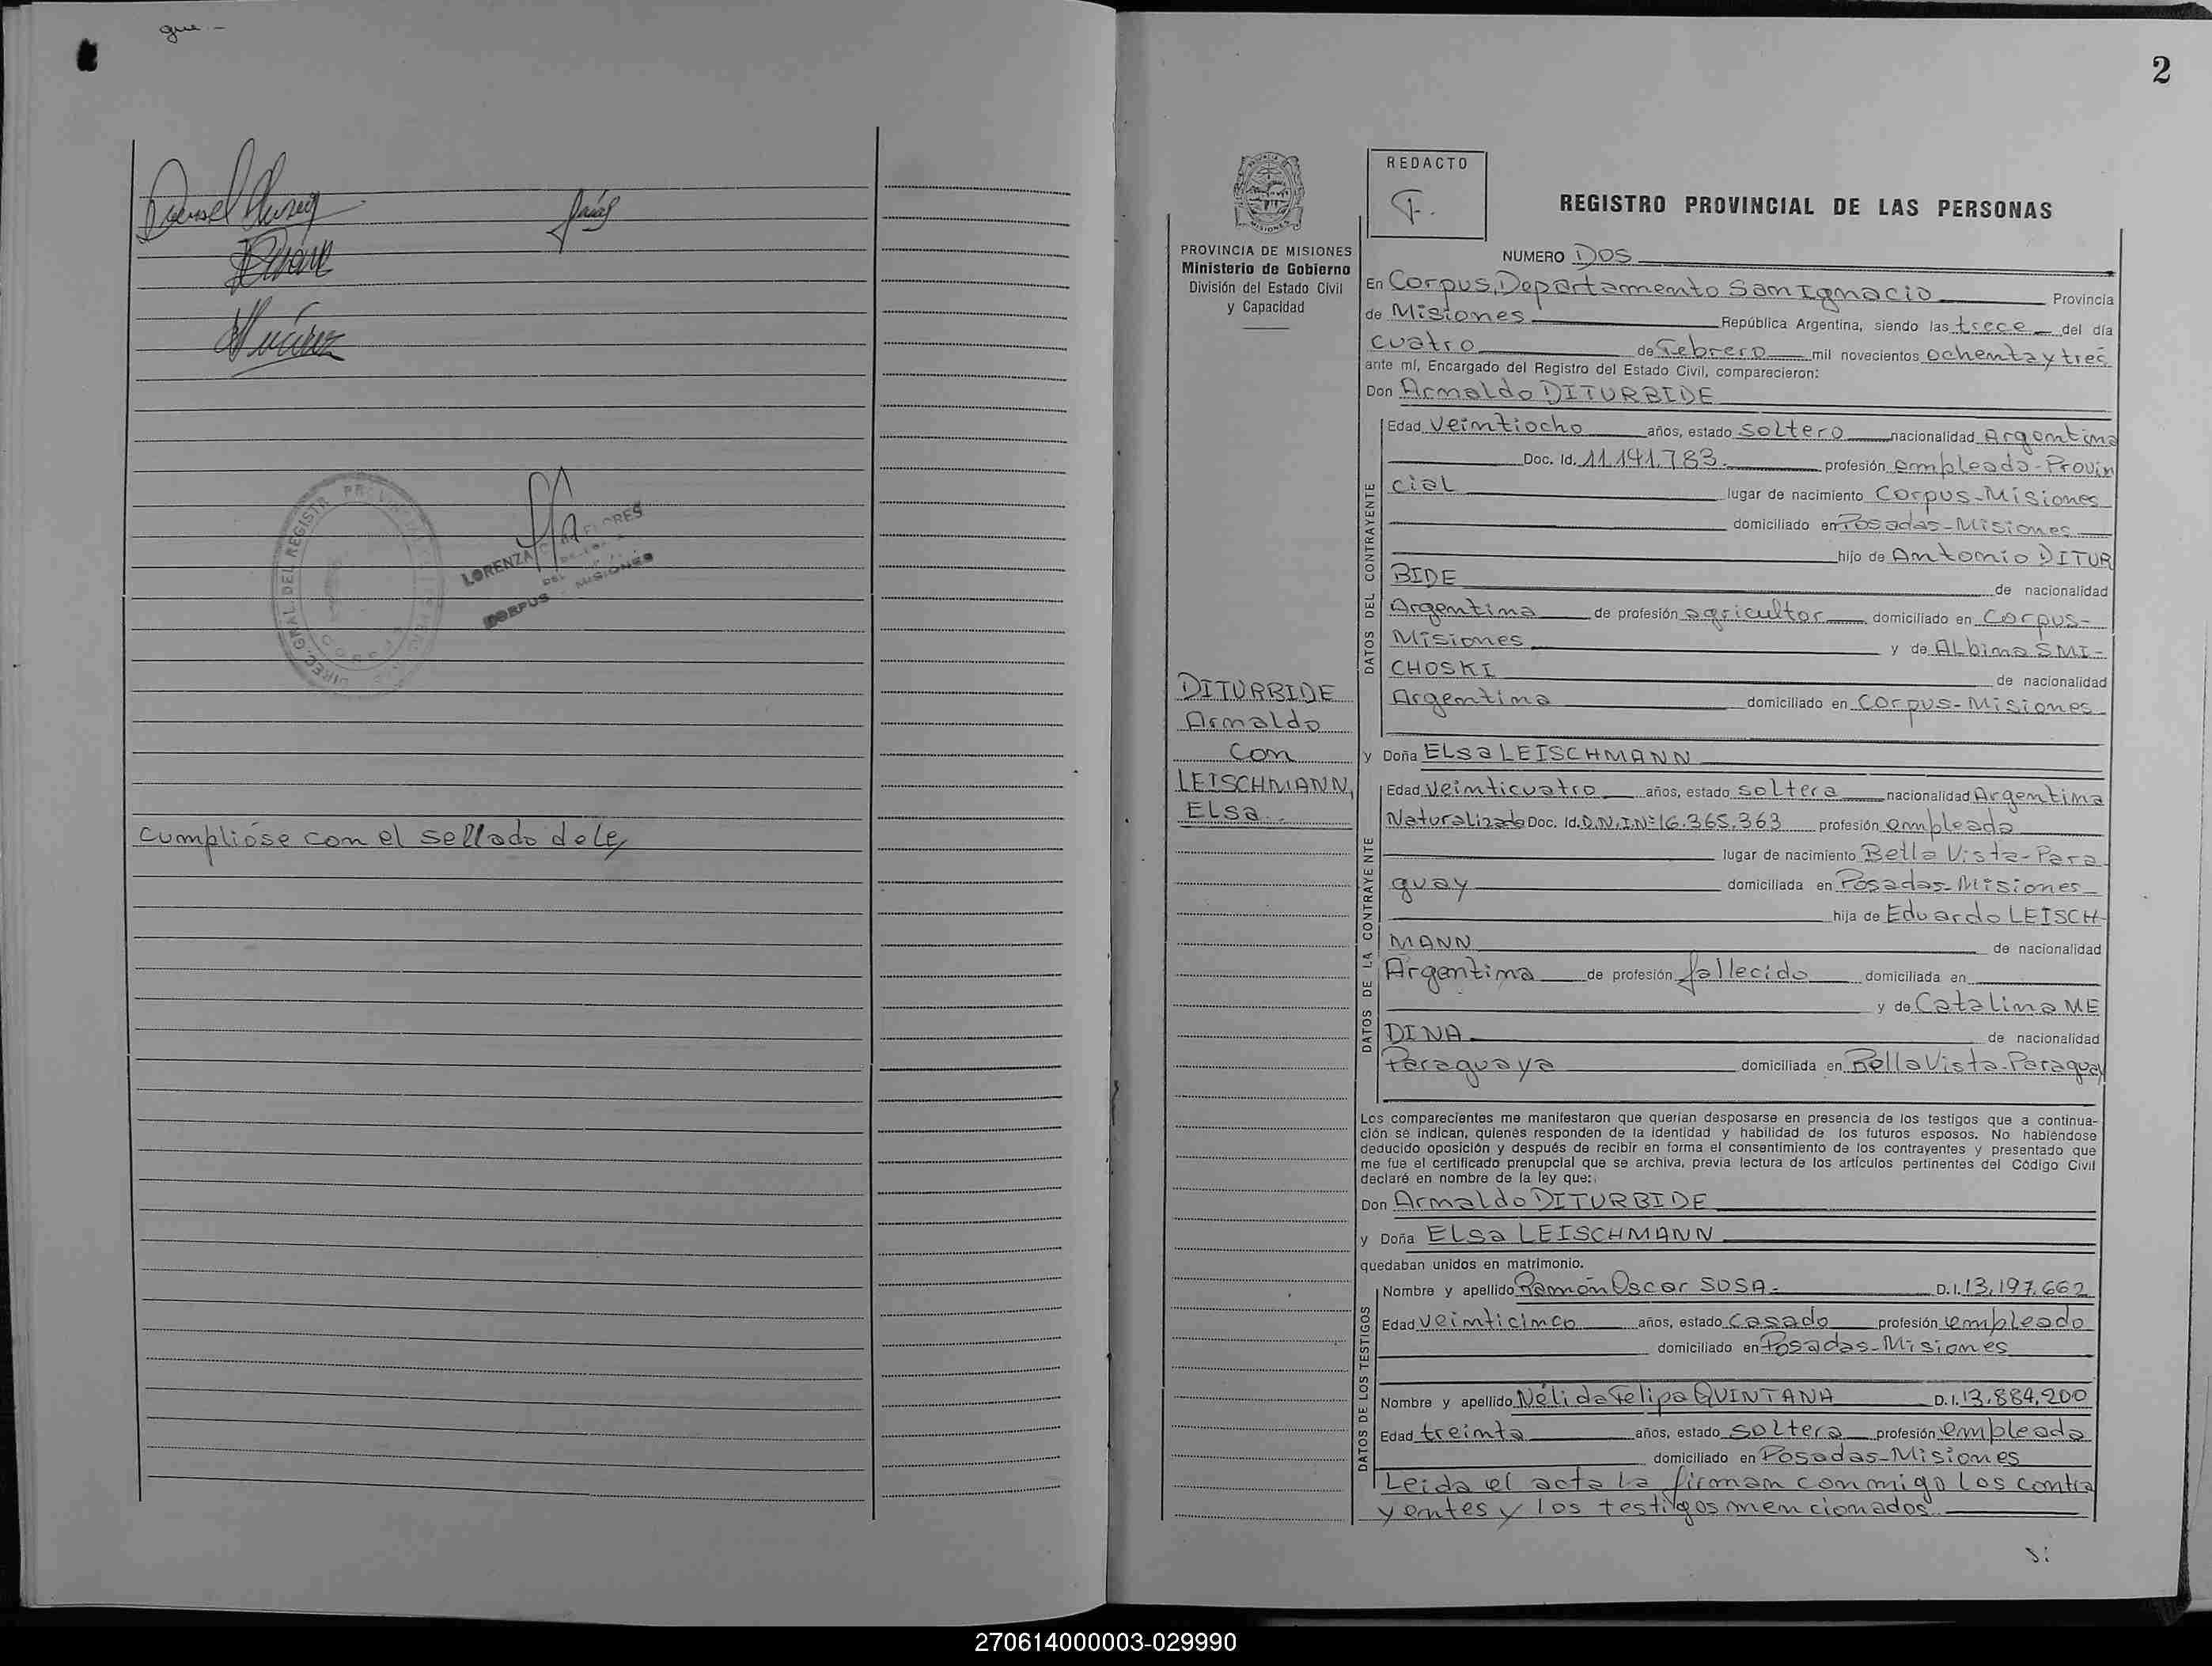 gue.-
LORENZA FLORES
CORPUS MISIONES
DIREC. GRAL. DEL REGISTRO
Cumplióse con el sellado de ley
2
REDACTO
F.
REGISTRO PROVINCIAL DE LAS PERSONAS
PROVINCIA DE MISIONES
Ministerio de Gobierno
División del Estado Civil
y Capacidad
NUMERO DOS
En Corpus, Departamento San Ignacio Provincia
de Misiones República Argentina, siendo las trece del día
cuatro de Febrero mil novecientos ochenta y tres
ante mí, Encargado del Registro del Estado Civil, comparecieron:
Don Arnaldo DITURBIDE
DATOS DEL CONTRAYENTE
Edad Veintiocho años, estado soltero nacionalidad Argentina
Doc. Id. 11.141.783.- profesión empleado-Provin
cial lugar de nacimiento Corpus-Misiones
domiciliado en Posadas-Misiones
hijo de Antonio DITUR
BIDE de nacionalidad
Argentina de profesión agricultor domiciliado en Corpus-
Misiones y de Albina SMI-
CHOSKI de nacionalidad
Argentina domiciliado en Corpus-Misiones
DITURBIDE
Arnaldo
con
LEISCHMANN,
Elsa.-
y Doña ELsa LEISCHMANN
DATOS DE LA CONTRAYENTE
Edad Veinticuatro años, estado soltera nacionalidad Argentina
Naturalizada Doc. Id. D.N.I.Nº 16.365.363 profesión empleada
lugar de nacimiento Bella Vista-Para
guay domiciliada en Posadas-Misiones
hija de Eduardo LEISCH-
MANN de nacionalidad
Argentina de profesión fallecido domiciliada en
y de Catalina ME
DINA de nacionalidad
Paraguaya domiciliada en Bella Vista-Paraguay
Los comparecientes me manifestaron que querían desposarse en presencia de los testigos que a continua-
ción se indican, quienes responden de la identidad y habilidad de los futuros esposos. No habiéndose
deducido oposición y después de recibir en forma el consentimiento de los contrayentes y presentado que
me fue el certificado prenupcial que se archiva, previa lectura de los artículos pertinentes del Código Civil
declaré en nombre de la ley que:
Don Arnaldo DITURBIDE
y Doña ELsa LEISCHMANN
quedaban unidos en matrimonio.
DATOS DE LOS TESTIGOS
Nombre y apellido Ramón Oscar SOSA.- D.I. 13.197.662
Edad veinticinco años, estado casado profesión empleado
domiciliado en Posadas-Misiones
Nombre y apellido Nélida Felipa QUINTANA D.I. 13.884.200
Edad treinta años, estado soltera profesión empleada
domiciliado en Posadas-Misiones
Leida el acta la firman conmigo los contra
yentes y los testigos mencionados.
si
270614000003-029990